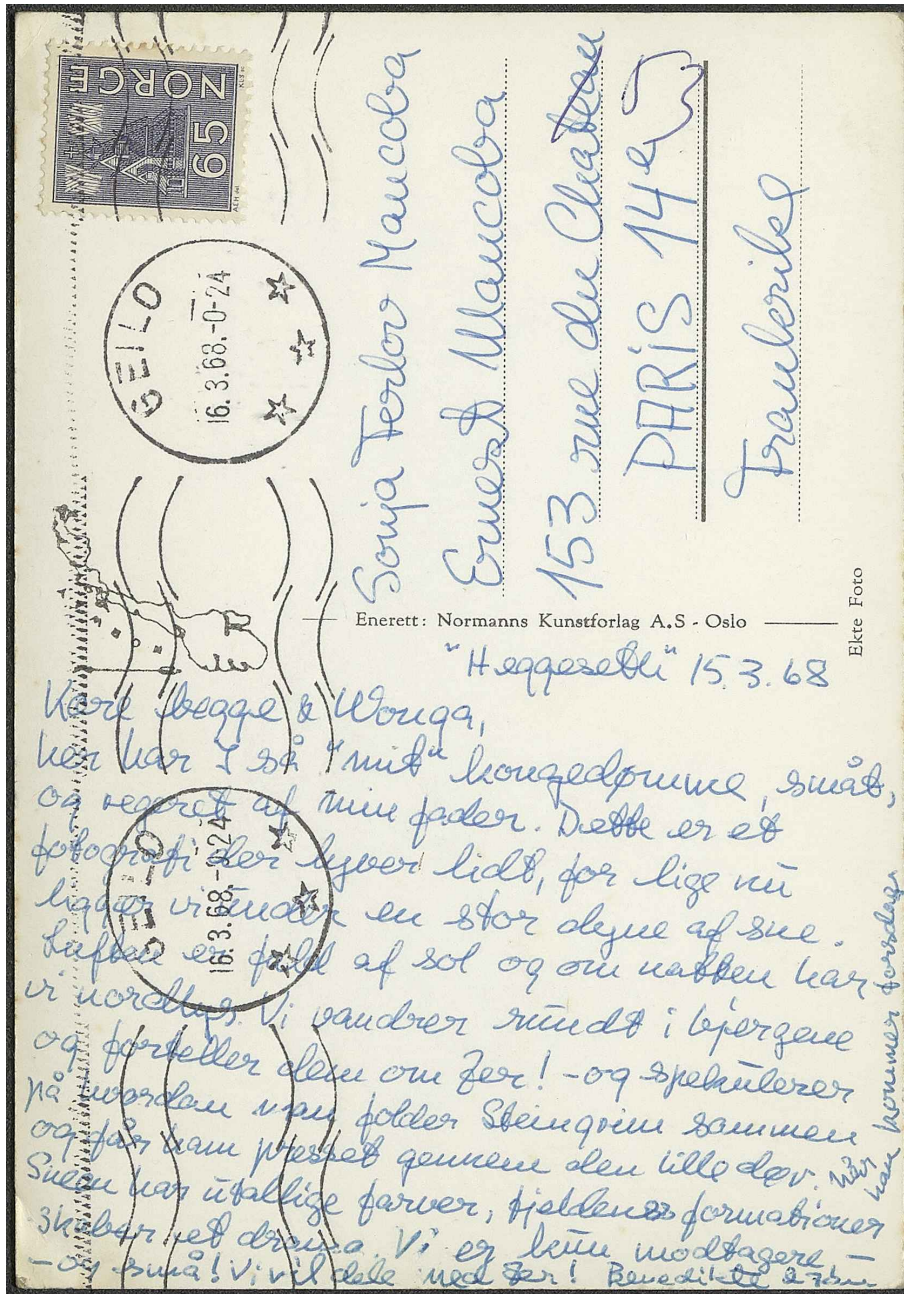 NORGE
65
GEILO
16.3.68.-0-24
Sonja Ferlov Mancoba
Ernest Mancoba
153 rue du Chateau
PARIS 14e
Frankrike
Enerett: Normanns Kunstforlag A.S - Oslo
Ekte Foto
"Heggesetli" 15.3.68
Kære begge & Wonga,
her har I så "mit" kongedømme, småt,
og regeret af min fader. Dette er et
fotografi der lyver lidt, for lige nu
ligger vi under en stor dyne af sne.
Luften er fyldt af sol og om natten har
vi nordlys. Vi vandrer rundt i bjergene
og forteller dem om Jer! - og spekulerer
på hvordan man folder Steingrim sammen
og får ham presset gennem den lille dør. Når
han kommer torsdag
Sneen har utallige farver, fjeldenes formationer
skaber et drama. Vi er kun modtagere -
- og små! Vi vil dele med Jer! Benedikte &
GEILO
16.3.68.-0-24